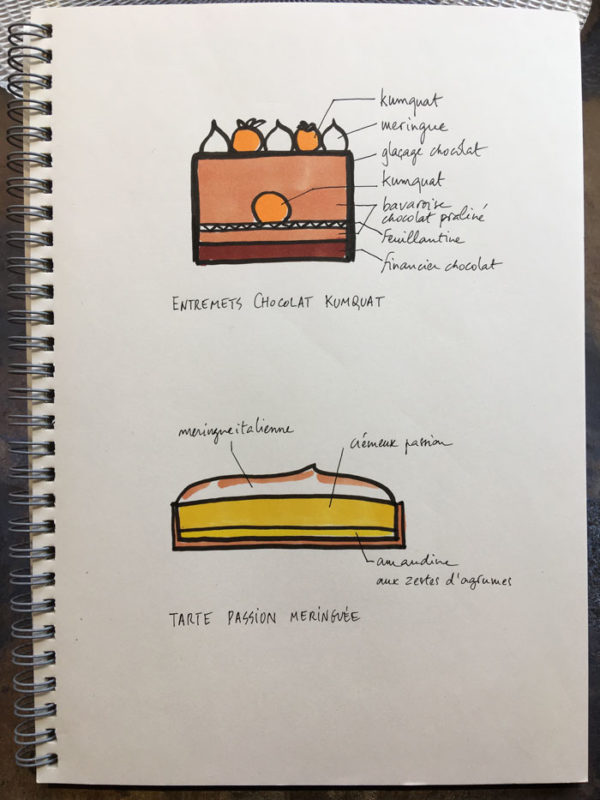 kumquat
meringue
glaçage chocolat
kumquat
bavaroise
chocolat praliné
feuillantine
financier chocolat
ENTREMETS CHOCOLAT KUMQUAT
meringue italienne
crémeux passion
amandine
aux zestes d'agrumes
TARTE PASSION MERINGUÉE